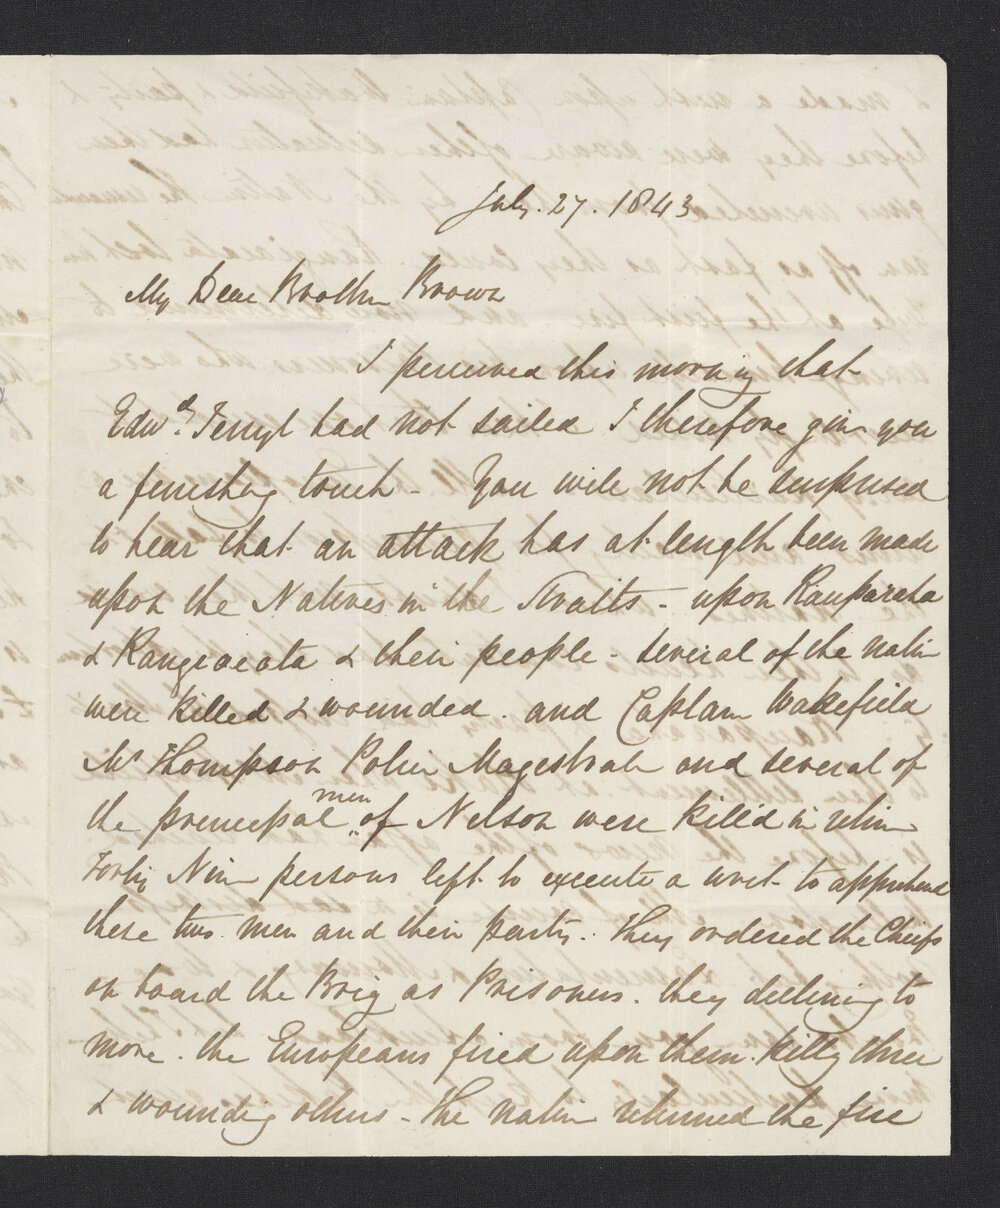 July. 27. 1843
My Dear Brother Brown
I perceived this morning that
Edwd. had not sailed I therefore give you
a finishing touch - You will not be surprised
to hear that an attack has at length been made
upon the Natives in the Straits - upon Rauparaha
& Rangiaiata & their people - several of the native
were killed & wounded. and Captain Wakefield
Mr Thompson Police Magestrate and several of
the principal men of Nelson were killed in return
Forty Nine persons left to execute a writ to apprehend
these two men and their party. They ordered the Chiefs
on board the Brig as Prisoners. they declining to
move. the Europeans fired upon them. killg three
& wounding others - The native returned the fire